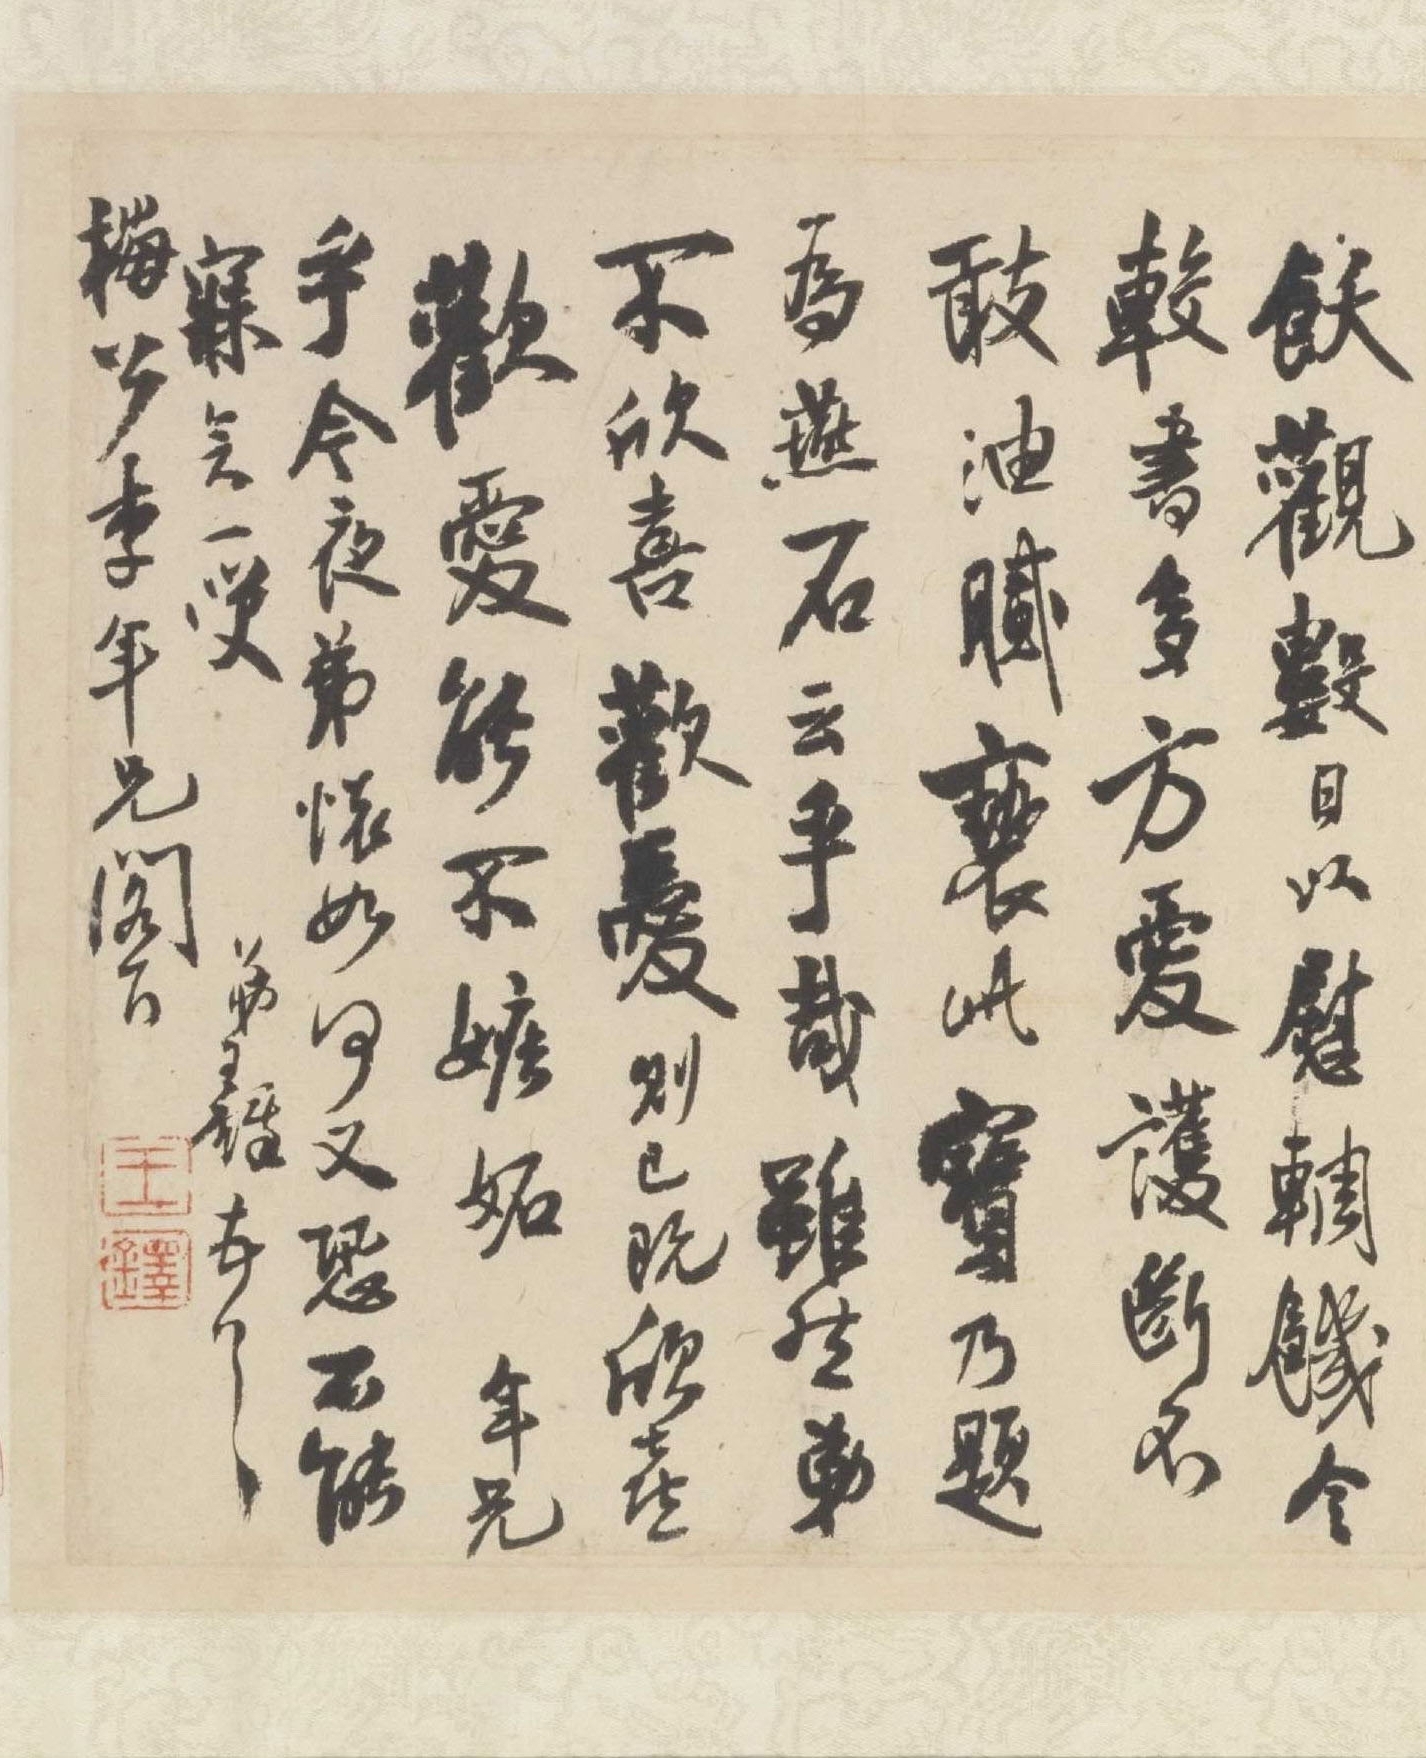 飫觀數日以慰輖饑今
較書多方愛護斷不
敢油膩褻此寶乃題
為燕石云乎哉雖然弟
不欣喜歡愛則已既欣喜
歡愛能不嫉妬年兄
乎今夜弟懷如何又恐不能
寐矣一笑
弟王鐸頓首
梅公李年兄閣下
王鐸